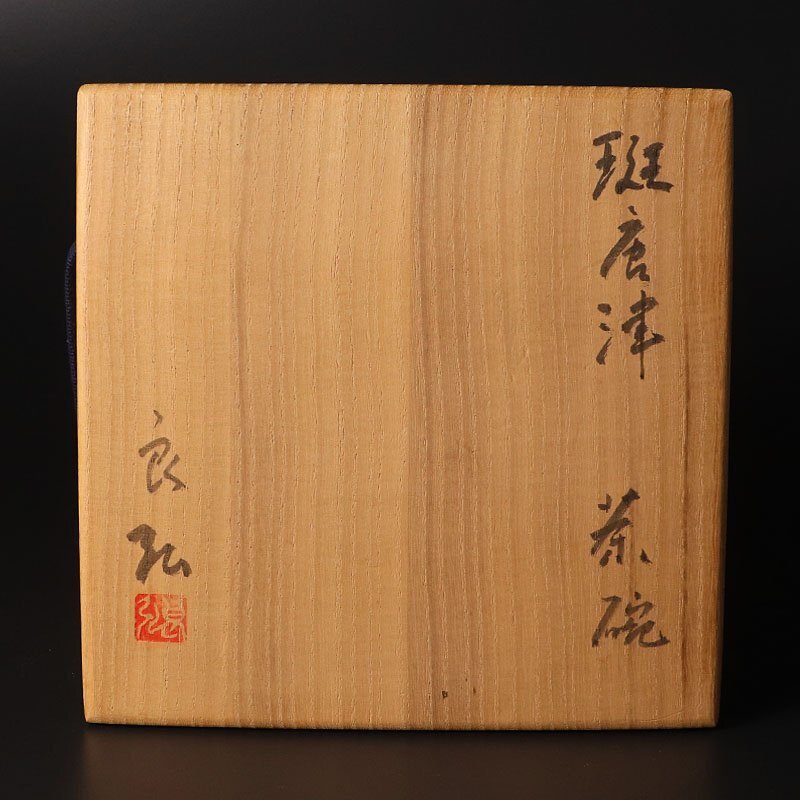 斑唐津 茶碗
良弘